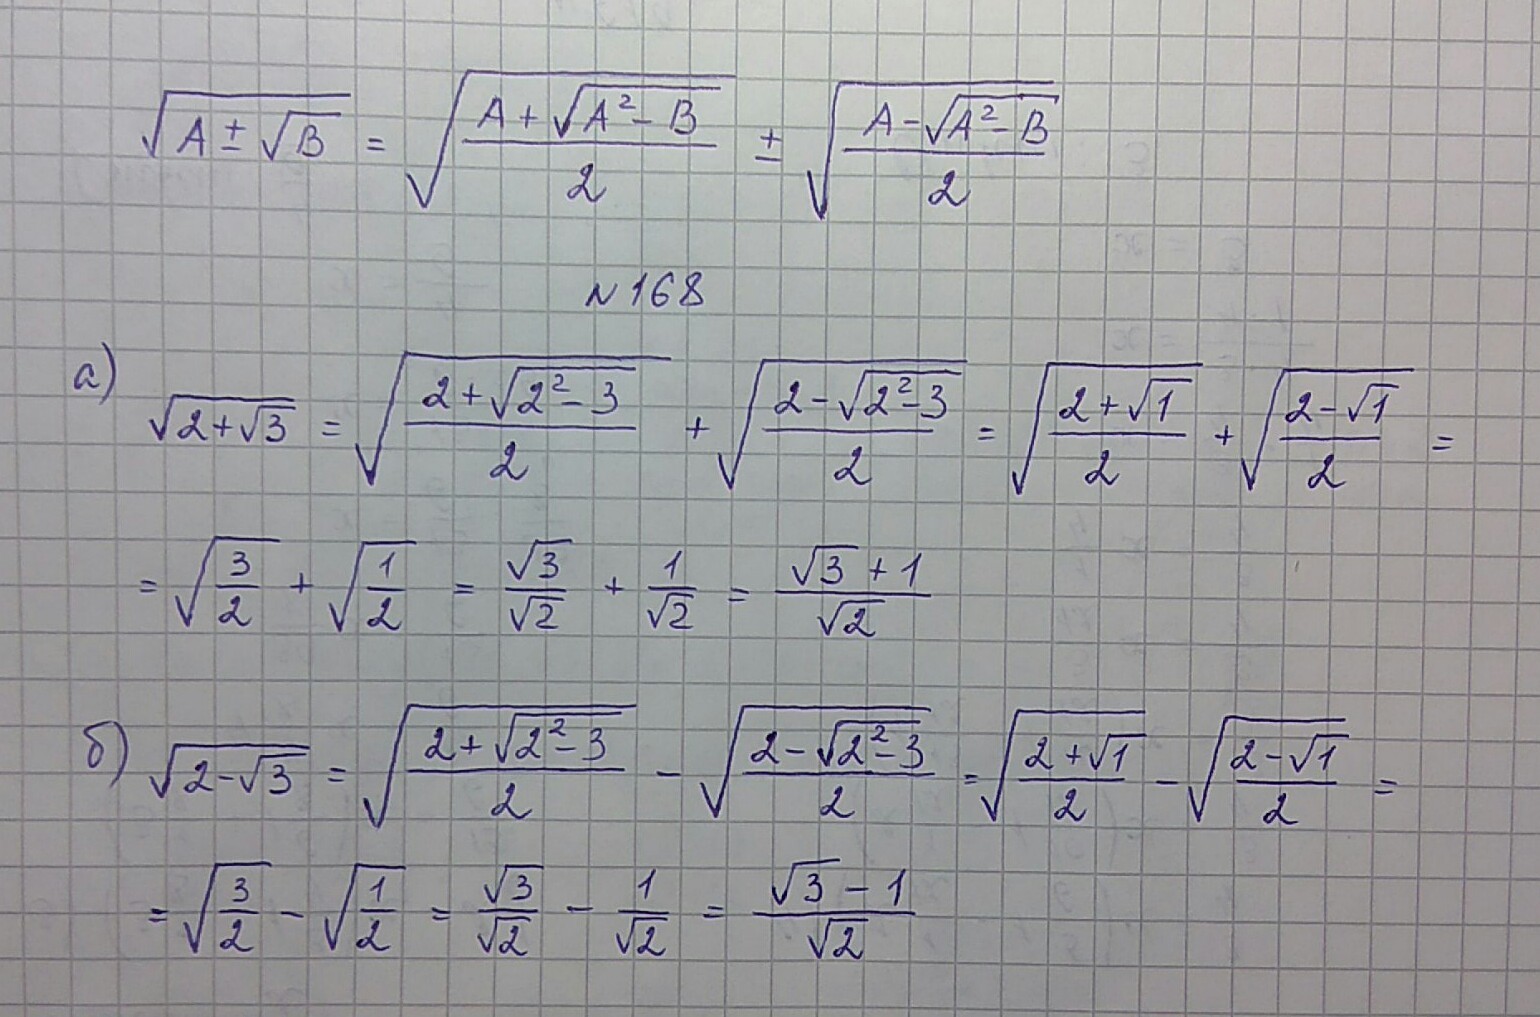 √(A ± √B) = √((A + √(A² - B))/2) ± √((A - √(A² - B))/2)
N 168
а) √(2+√3) = √((2+√(2²-3))/2) + √((2-√(2²-3))/2) = √((2+√1)/2) + √((2-√1)/2) =
= √(3/2) + √(1/2) = √3/√2 + 1/√2 = (√3 + 1)/√2
б) √(2-√3) = √((2+√(2²-3))/2) - √((2-√(2²-3))/2) = √((2+√1)/2) - √((2-√1)/2) =
= √(3/2) - √(1/2) = √3/√2 - 1/√2 = (√3 - 1)/√2